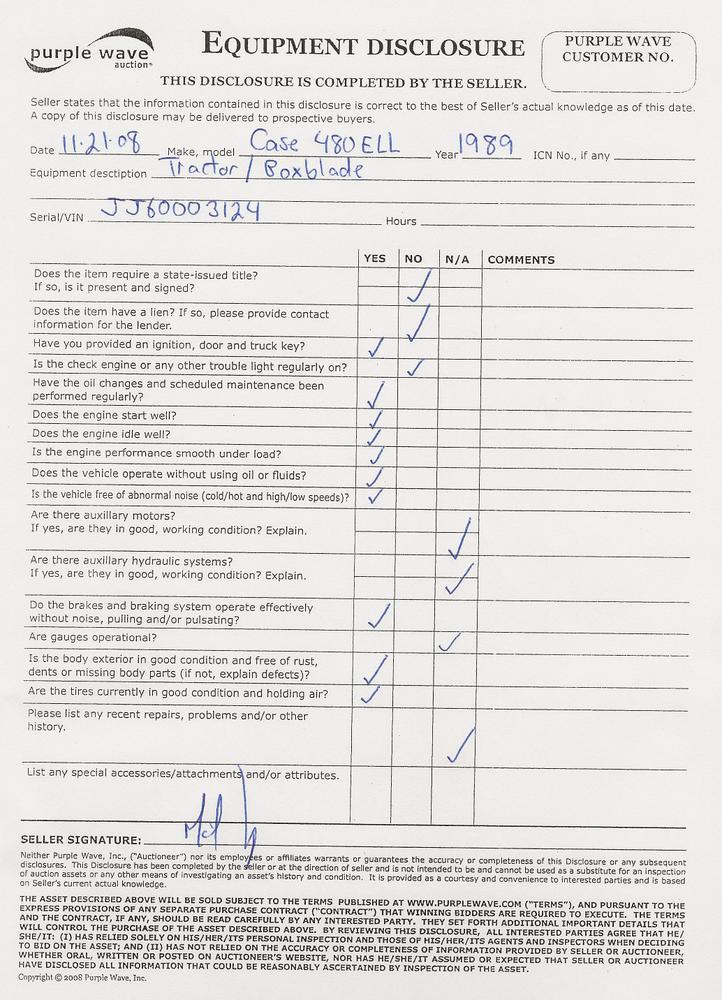 purple wave
auction®
EQUIPMENT DISCLOSURE
PURPLE WAVE
CUSTOMER NO.
THIS DISCLOSURE IS COMPLETED BY THE SELLER.
Seller states that the information contained in this disclosure is correct to the best of Seller's actual knowledge as of this date.
A copy of this disclosure may be delivered to prospective buyers.
Date 11·21·08 Make, model Case 480ELL Year 1989 ICN No., if any
Equipment desctiption Tractor / Boxblade
Serial/VIN JJ60003124 Hours
YES NO N/A COMMENTS
Does the item require a state-issued title?
If so, is it present and signed? ✓
Does the item have a lien? If so, please provide contact
information for the lender. ✓
Have you provided an ignition, door and truck key? ✓
Is the check engine or any other trouble light regularly on? ✓
Have the oil changes and scheduled maintenance been
performed regularly? ✓
Does the engine start well? ✓
Does the engine idle well? ✓
Is the engine performance smooth under load? ✓
Does the vehicle operate without using oil or fluids? ✓
Is the vehicle free of abnormal noise (cold/hot and high/low speeds)? ✓
Are there auxillary motors?
If yes, are they in good, working condition? Explain. ✓
Are there auxillary hydraulic systems?
If yes, are they in good, working condition? Explain. ✓
Do the brakes and braking system operate effectively
without noise, pulling and/or pulsating? ✓
Are gauges operational? ✓
Is the body exterior in good condition and free of rust,
dents or missing body parts (if not, explain defects)? ✓
Are the tires currently in good condition and holding air? ✓
Please list any recent repairs, problems and/or other
history. ✓
List any special accessories/attachments and/or attributes.
SELLER SIGNATURE:
Neither Purple Wave, Inc., ("Auctioneer") nor its employees or affiliates warrants or guarantees the accuracy or completeness of this Disclosure or any subsequent
disclosures. This Disclosure has been completed by the seller or at the direction of seller and is not intended to be and cannot be used as a substitute for an inspection
of auction assets or any other means of investigating an asset's history and condition. It is provided as a courtesy and convenience to interested parties and is based
on Seller's current actual knowledge.
THE ASSET DESCRIBED ABOVE WILL BE SOLD SUBJECT TO THE TERMS PUBLISHED AT WWW.PURPLEWAVE.COM ("TERMS"), AND PURSUANT TO THE
EXPRESS PROVISIONS OF ANY SEPARATE PURCHASE CONTRACT ("CONTRACT") THAT WINNING BIDDERS ARE REQUIRED TO EXECUTE. THE TERMS
AND THE CONTRACT, IF ANY, SHOULD BE READ CAREFULLY BY ANY INTERESTED PARTY. THEY SET FORTH ADDITIONAL IMPORTANT DETAILS THAT
WILL CONTROL THE PURCHASE OF THE ASSET DESCRIBED ABOVE. BY REVIEWING THIS DISCLOSURE, ALL INTERESTED PARTIES AGREE THAT HE/
SHE/IT: (I) HAS RELIED SOLELY ON HIS/HER/ITS PERSONAL INSPECTION AND THOSE OF HIS/HER/ITS AGENTS AND INSPECTORS WHEN DECIDING
TO BID ON THE ASSET; AND (II) HAS NOT RELIED ON THE ACCURACY OR COMPLETENESS OF INFORMATION PROVIDED BY SELLER OR AUCTIONEER,
WHETHER ORAL, WRITTEN OR POSTED ON AUCTIONEER'S WEBSITE, NOR HAS HE/SHE/IT ASSUMED OR EXPECTED THAT SELLER OR AUCTIONEER
HAVE DISCLOSED ALL INFORMATION THAT COULD BE REASONABLY ASCERTAINED BY INSPECTION OF THE ASSET.
Copyright © 2008 Purple Wave, Inc.